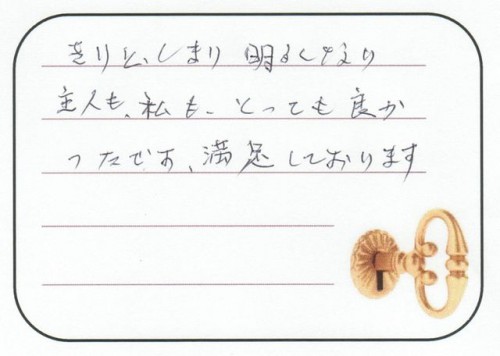 きりっしまり 明るくなり
主人も、私も、とっても良か
ったです、満足しております